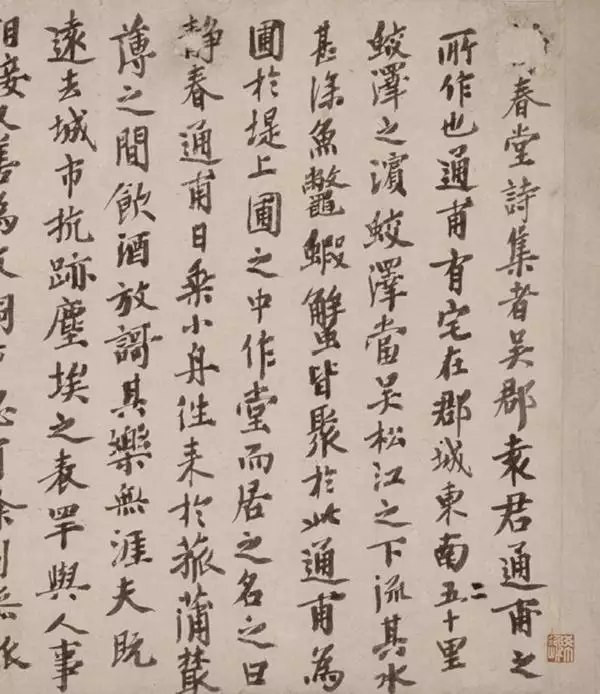 春堂詩集者吳郡袁君通甫之
所作也通甫有宅在郡城東南五十里
蛟澤之濱蛟澤當吳松江之下流其水
甚深魚鼈蝦蟹皆聚於此通甫為
圃於堤上圃之中作堂而居之名之曰
靜春通甫日乘小舟往来於菰蒲叢
薄之間飲酒放謌其樂無涯夫既
遠去城市抗跡塵埃之表罕與人事
相接又善為